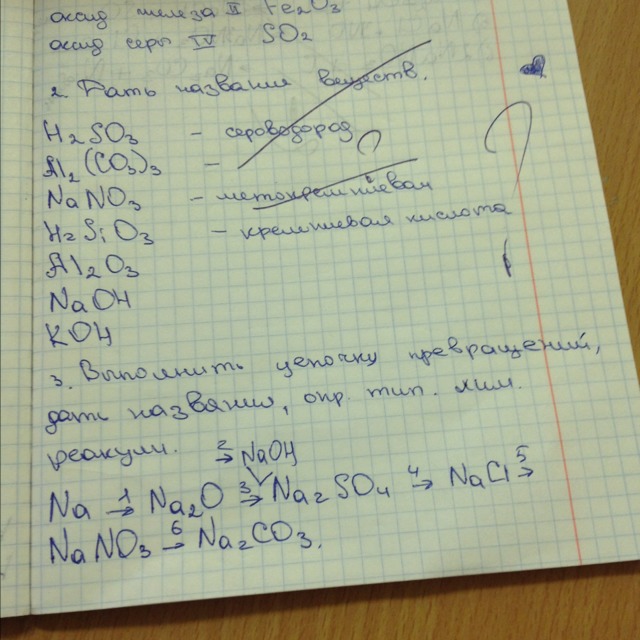 оксид железа II Fe₂O₃
оксид серы IV SO₂
2. Дать названия веществ.
H₂SO₃ – сероводород
Al₂(CO₃)₃ –
NaNO₃ – метокремниевая
H₂SiO₃ – кремниевая кислота
Al₂O₃
NaOH
KOH
3. Выполнить цепочку превращений,
дать названия, опр. тип. хим.
реакции.
2→ NaOH
Na 1→ Na₂O 3→ Na₂SO₄ 4→ NaCl 5→
NaNO₃ 6→ Na₂CO₃.